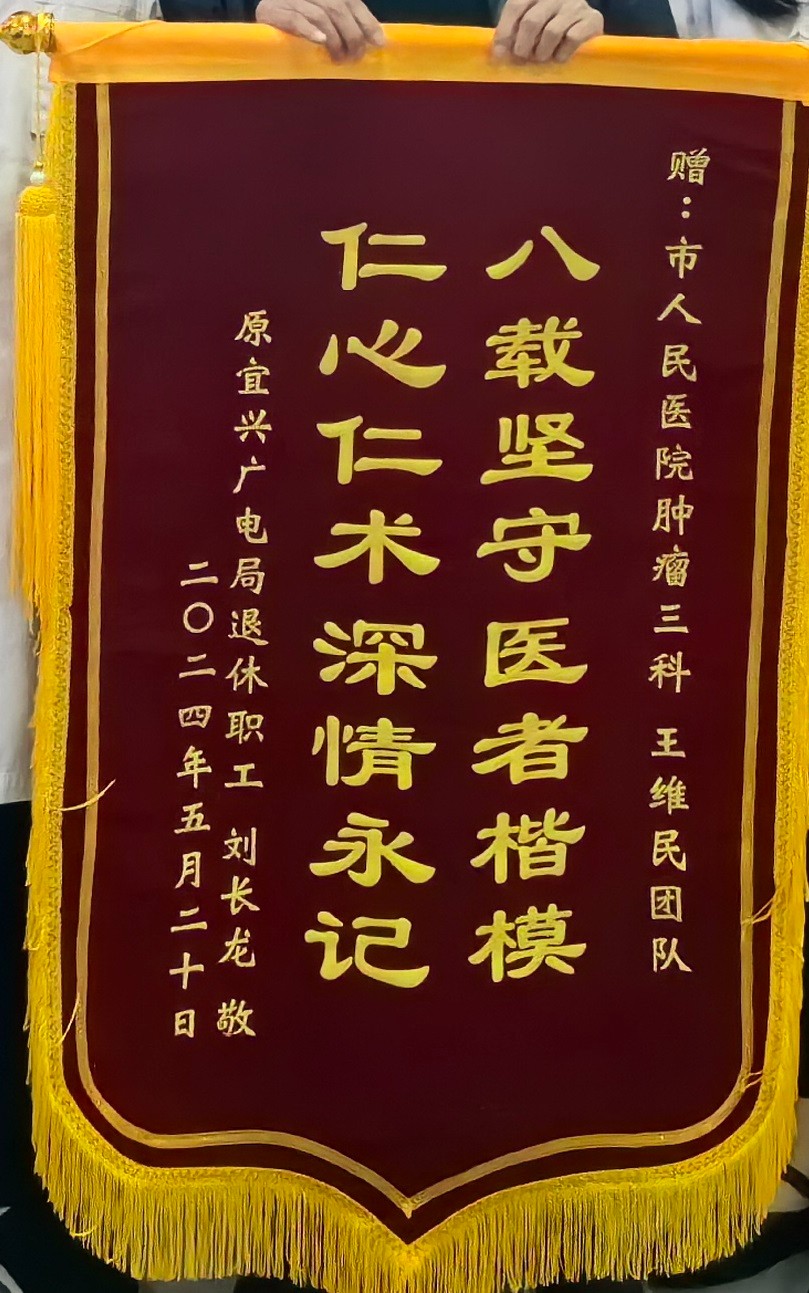 赠：市人民医院肿瘤三科 王维民团队
八载坚守医者楷模
仁心仁术深情永记
原宜兴广电局退休职工 刘长龙 敬
二〇二四年五月二十日